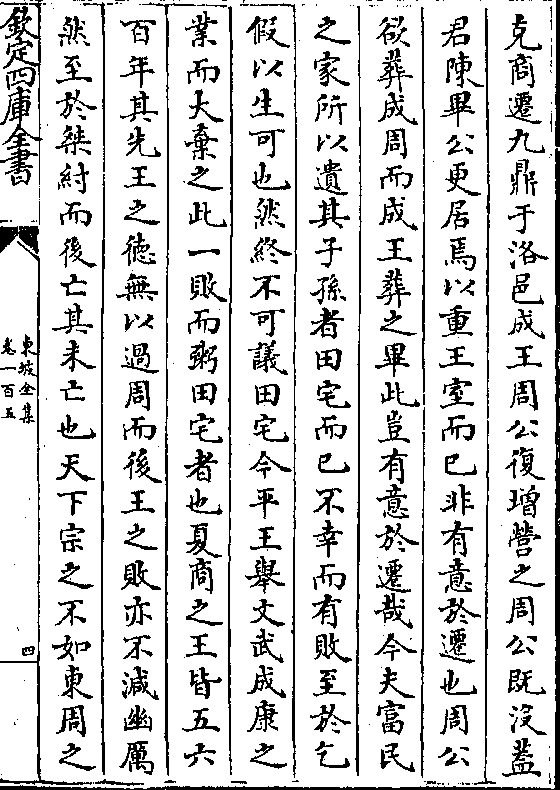 克商遷九鼎于洛邑成王周公復增營之周公既沒蓋
君陳畢公更居焉以重王室而已非有意於遷也周公
欲葬成周而成王葬之畢此豈有意於遷哉今夫富民
之家所以遺其子孫者田宅而已不幸而有敗至於乞
假以生可也然終不可議田宅今平王舉文武成康之
業而大棄之此一敗而粥田宅者也夏商之王皆五六
百年其先王之德無以過周而後王之敗亦不減幽厲
然至於桀紂而後亡其未亡也天下宗之不如東周之
欽定四庫全書
東坡全集
卷一百五
四